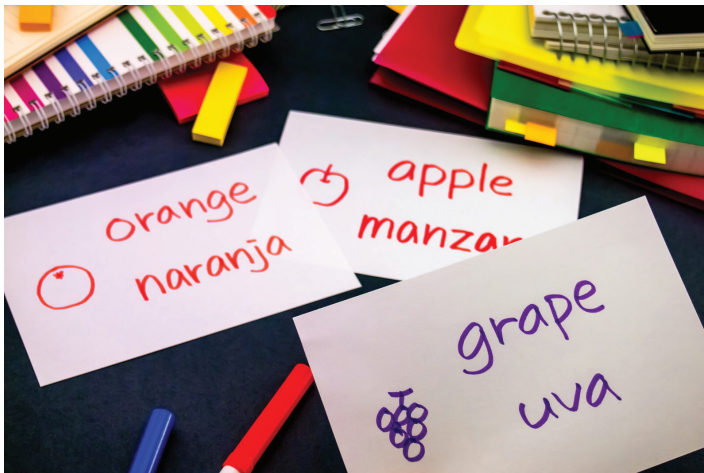 orange
naranja
apple
manzan
grape
uva